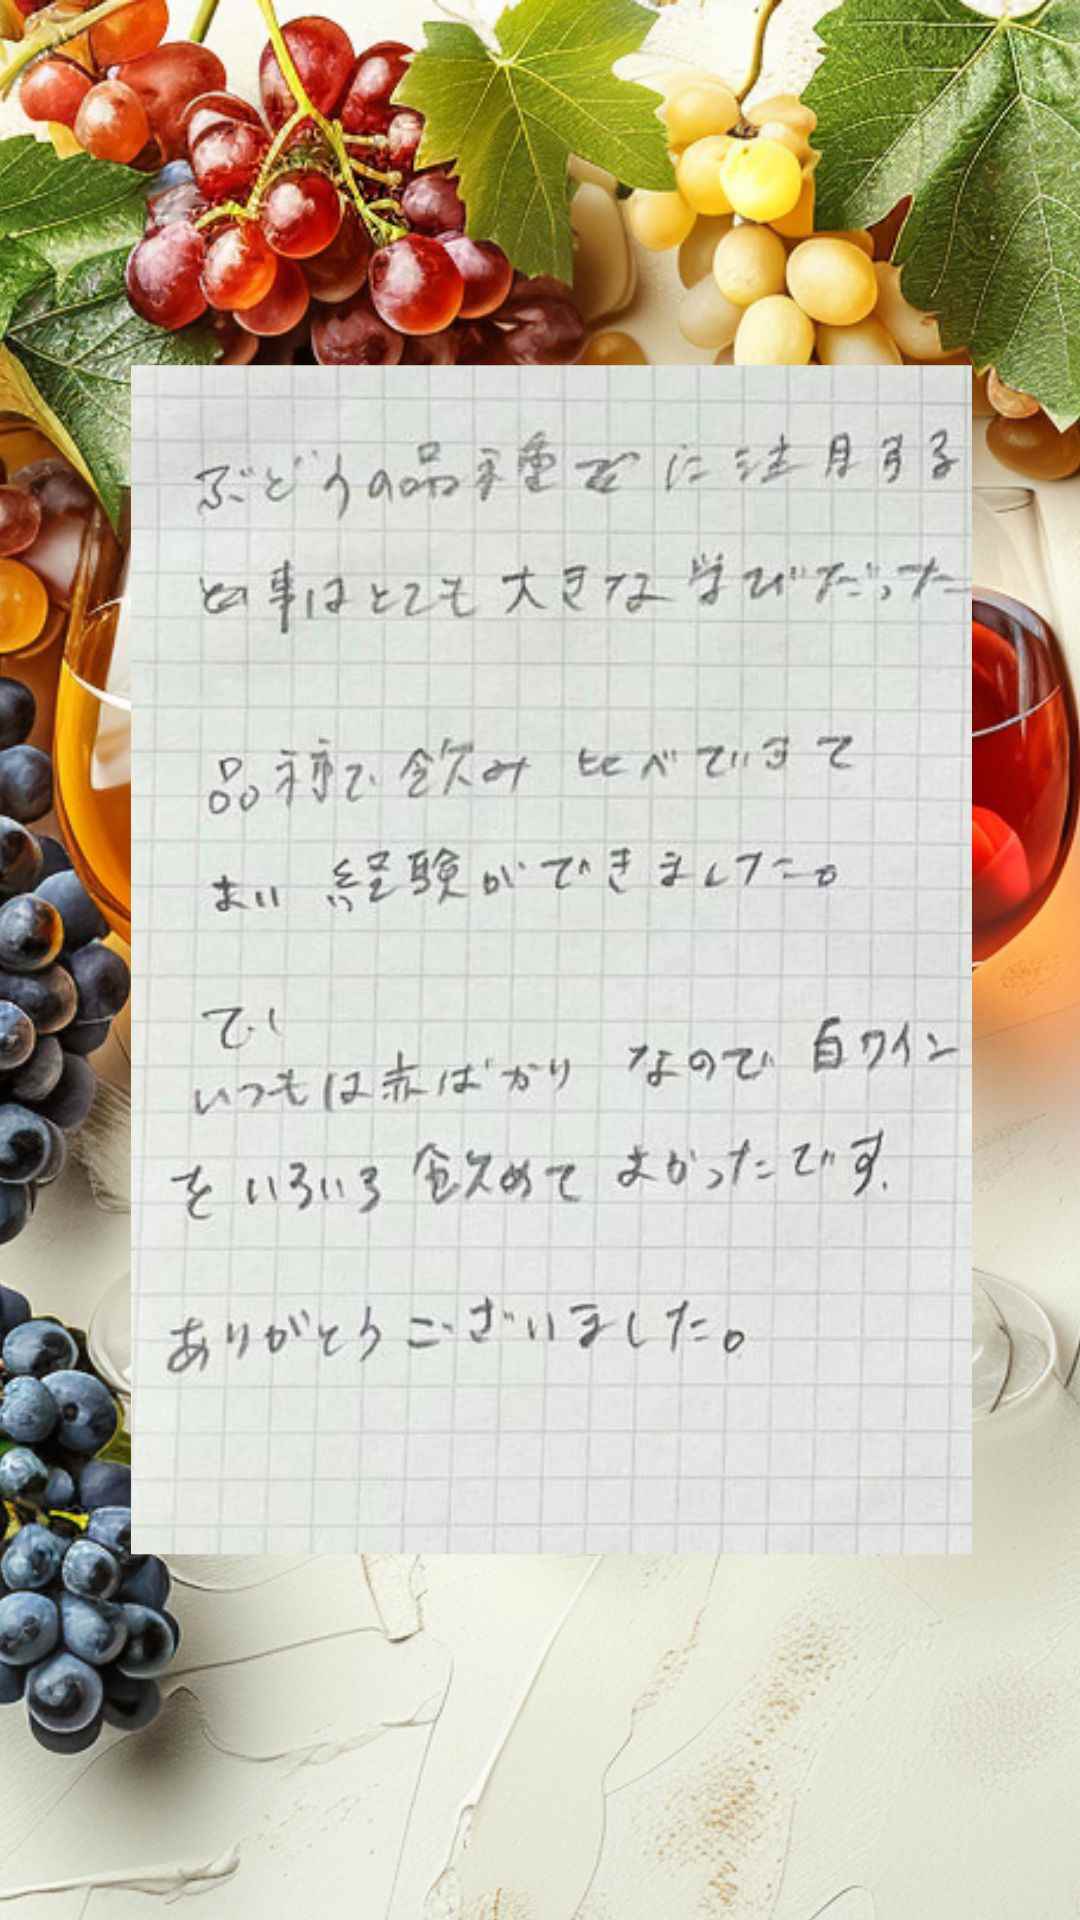 ぶどうの品種に注目する
事はとても大きな学びだった
品種で飲み比べできて
よい経験ができました。
で
いつもは赤ばかりなので白ワイン
をいろいろ飲めてよかったです.
ありがとうございました。